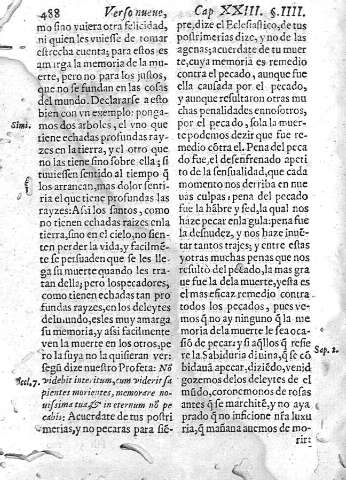 488 Verso nueve,
mo sino vuiera otra felicidad,
ni quien les viuiesse de tomar
estrecha cuenta; para estos es
amarga la memoria de la muer
te, pero no para los justos,
que no se fundan en las cosas
del mundo. Declararse a esto
bien con vn exemplo: ponga-
mos dos arboles, el vno que
Simi.
tiene echadas profundas rayzes
en la tierra, y el otro que
no las tiene sino sobre ella; si
tuuiessen sentido al tiempo q̃
los arrancan, mas dolor senti-
ria el que tiene profundas las
rayzes: Assi los santos, como
no tienen echadas raizes en la
tierra, sino en el cielo, no sien-
ten perder la vida, y facilmẽ-
te se persuaden que se les lle-
ga su muerte quando les tra-
tan della; pero los pecadores,
como tienen echadas tan pro
fundas rayzes, en los deleytes
del mundo, es les muy amarga
su memoria, y assi facilmente
ven la muerte en los otros, pe
ro la suya no la quisieran ver:
segun dize nuestro Profeta: Nõ
Eccl. 7.
videbit interitum, cum viderit sa
pientes morientes, memorare no-
uissima tua, & in eternum nõ pe
cabis: Acuerdate de tus postri
merias, y no pecaras para sie-
Cap XXIII. §. IIII.
pre, dize el Eclesiastico, de tus
postrimerias dize, y no de las
agenas; acuerdate de tu muer
te, cuya memoria es remedio
contra el pecado, aunque fue
ella causada por el pecado,
y aunque resultaron otras mu
chas penalidades en nosotros,
por el pecado, sola la muer-
te podemos dezir que fue re-
medio cõtra el. Pena del peca
do fue, el desenfrenado apeti
to de la sensualidad, que cada
momento nos derriba en nue
uas culpas: pena del pecado
fue la hãbre y sed, la qual nos
haze pecar en la gula: pena fue
la desnudez, y nos haze inuẽ-
tar tantos trajes; y entre estas
y otras muchas penas que nos
resultò del pecado, la mas gra
ue fue la dela muerte, y esta es
el mas eficaz remedio contra
todos los pecados, pues ve-
mos q̃ no ay ninguno q̃ la me
moria de la muerte le sea oca-
siõ de pecar; y si aq̃llos q̃ refie
re la Sabiduria diuina, q̃ se cõ
Sap. 2.
bidauã apecar, diziẽdo, veni
gozemos de los deleytes de el
mũdo, coronemonos de rosas
antes q̃ se marchitẽ, y no aya
prado q̃ no inficione nr̃a luxu
ria, q̃ mañana auemos de mo-
rir: